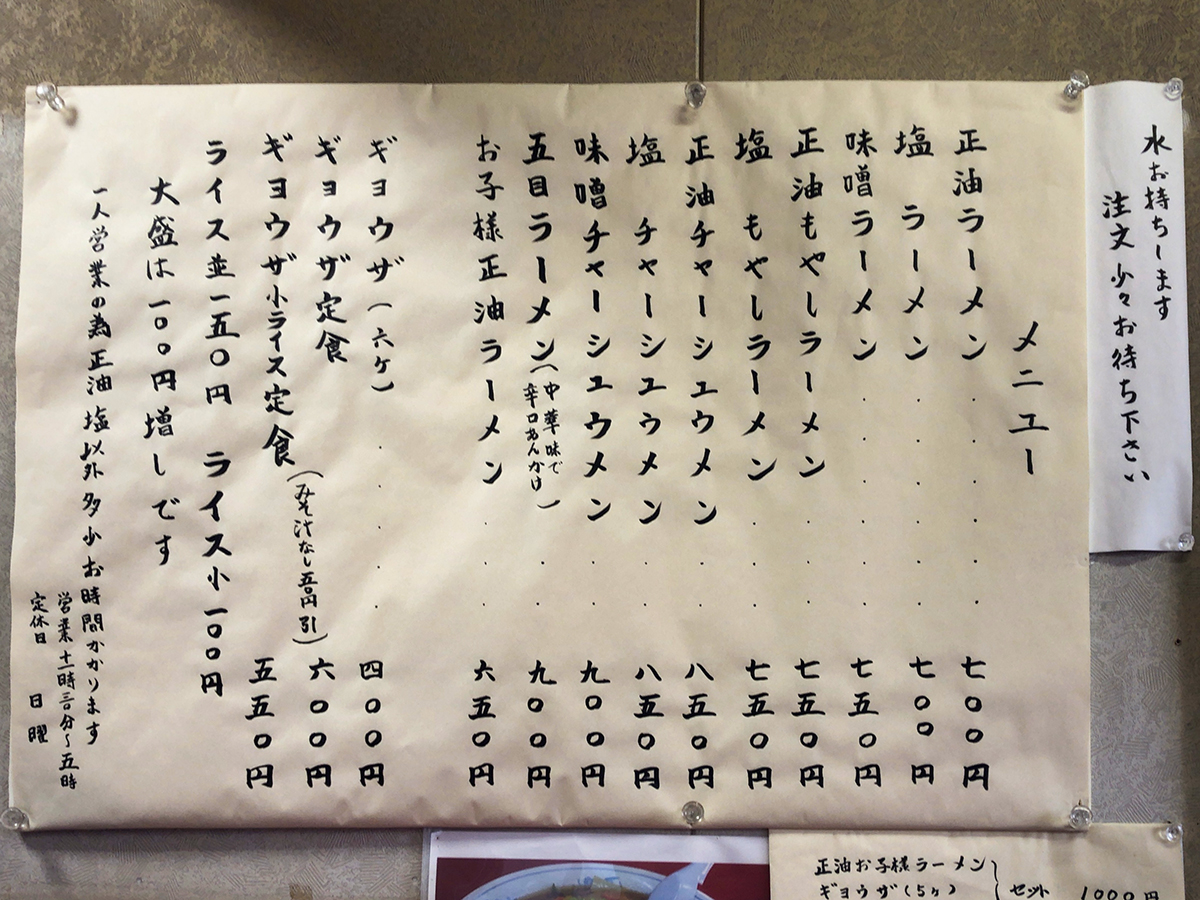 水お持ちします
注文少々お待ち下さい
メニユー
正油ラーメン・・・・・・七〇〇円
塩ラーメン・・・・・・七〇〇円
味噌ラーメン・・・・・・七五〇円
正油もやしラーメン・・・七五〇円
塩もやしラーメン・・・七五〇円
正油チャーシュウメン・・八五〇円
塩チャーシュウメン・・八五〇円
味噌チャーシュウメン・・九〇〇円
五目ラーメン(中華味で辛口あんかけ)・・九〇〇円
お子様正油ラーメン・・・六五〇円
ギョウザ(六ケ)・・・・・四〇〇円
ギョウザ定食 六〇〇円
ギョウザ小ライス定食(みそ汁なし五〇円引) 五五〇円
ライス並一五〇円 ライス小一〇〇円
大盛は一〇〇円増しです
一人営業の為正油塩以外多少お時間かかります
営業十一時三〇分〜五時
定休日 日曜
正油お子様ラーメン
ギョウザ(5ヶ)
セット 1000円